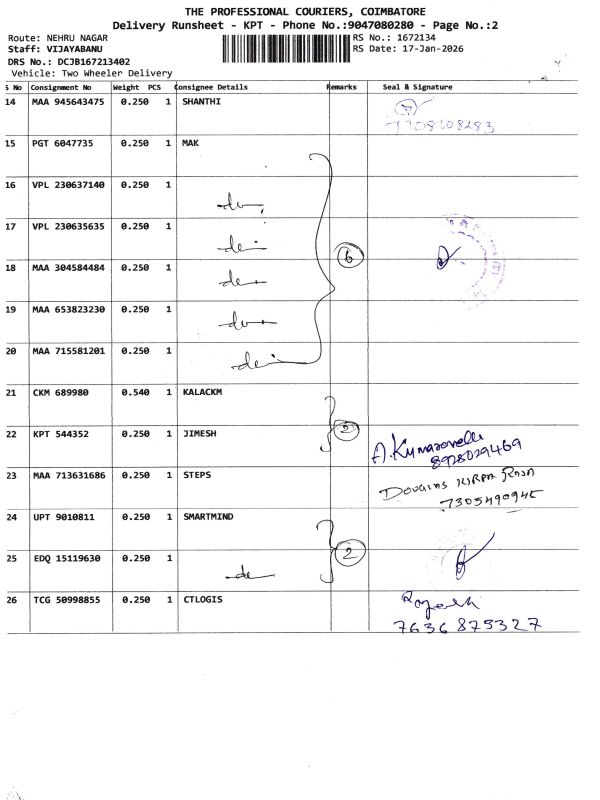 THE PROFESSIONAL COURIERS, COIMBATORE
Delivery Runsheet - KPT - Phone No.:9047080280 - Page No.:2
Route: NEHRU NAGAR RS No.: 1672134
Staff: VIJAYABANU RS Date: 17-Jan-2026
DRS No.: DCJB167213402
Vehicle: Two Wheeler Delivery
S No Consignment No Weight PCS Consignee Details Remarks Seal & Signature
14 MAA 945643475 0.250 1 SHANTHI
15 PGT 6047735 0.250 1 MAK
16 VPL 230637140 0.250 1
17 VPL 230635635 0.250 1
18 MAA 304584484 0.250 1
6
19 MAA 653823230 0.250 1
20 MAA 715581201 0.250 1
21 CKM 689980 0.540 1 KALACKM
22 KPT 544352 0.250 1 JIMESH
A.Kumaravelu
8928029469
23 MAA 713631686 0.250 1 STEPS
DOUGLAS KIRPA RAJA
24 UPT 9010811 0.250 1 SMARTMIND
2
25 EDQ 15119630 0.250 1
26 TCG 50998855 0.250 1 CTLOGIS
7636875327